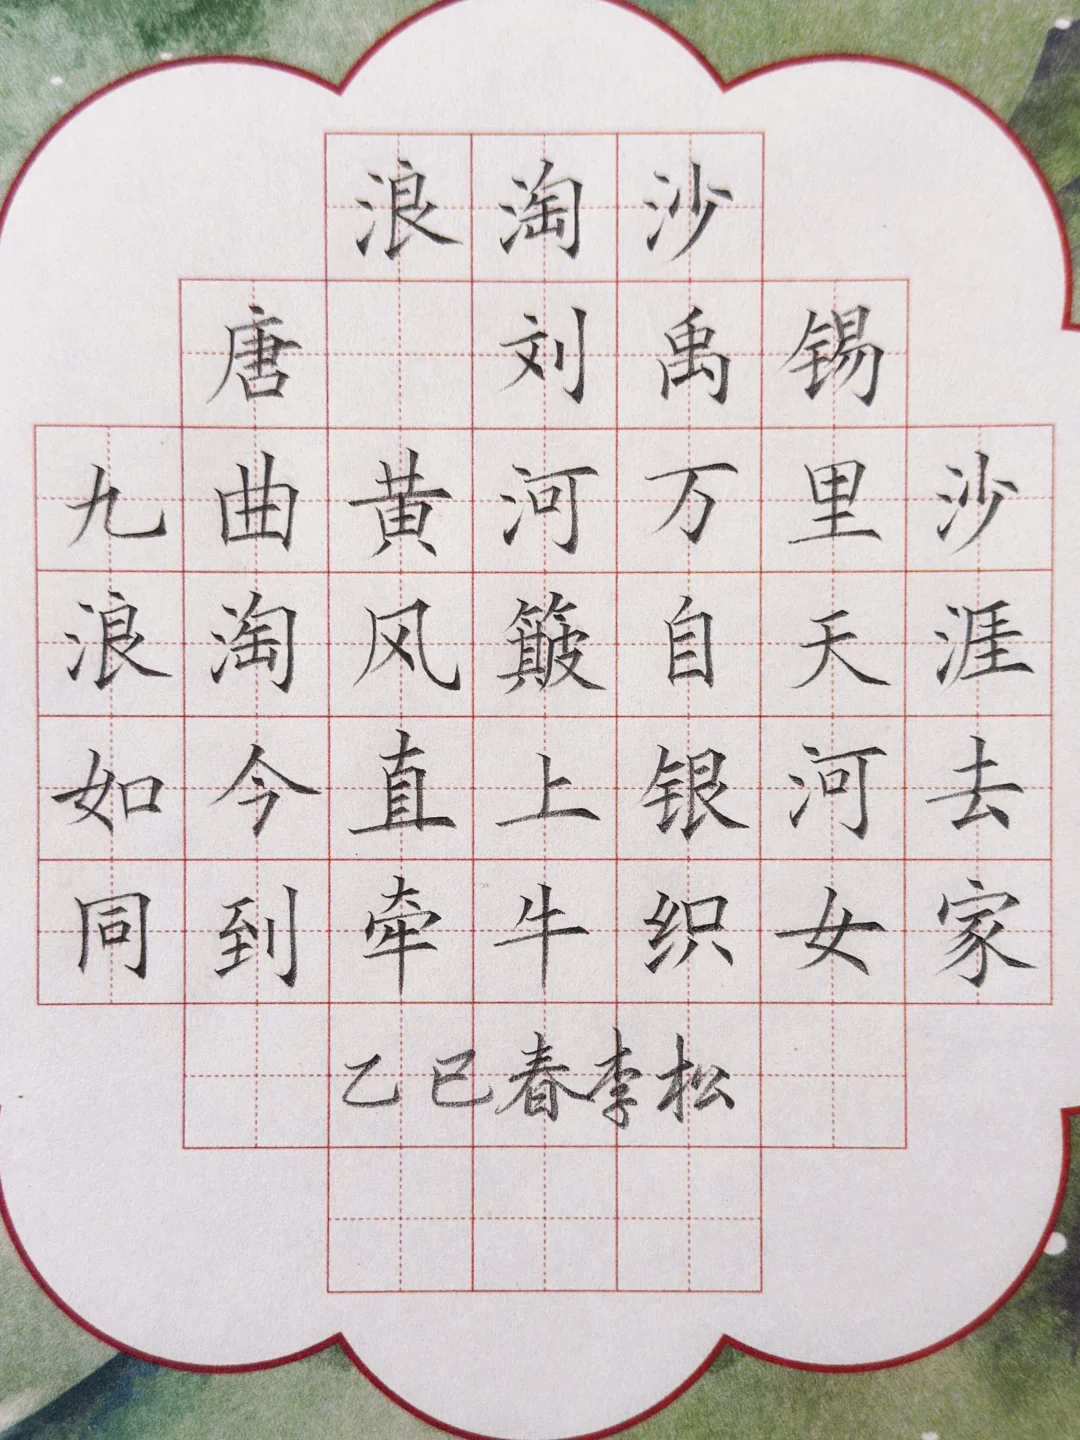 浪淘沙
唐 刘禹锡
九曲黄河万里沙
浪淘风簸自天涯
如今直上银河去
同到牵牛织女家
乙巳春李松